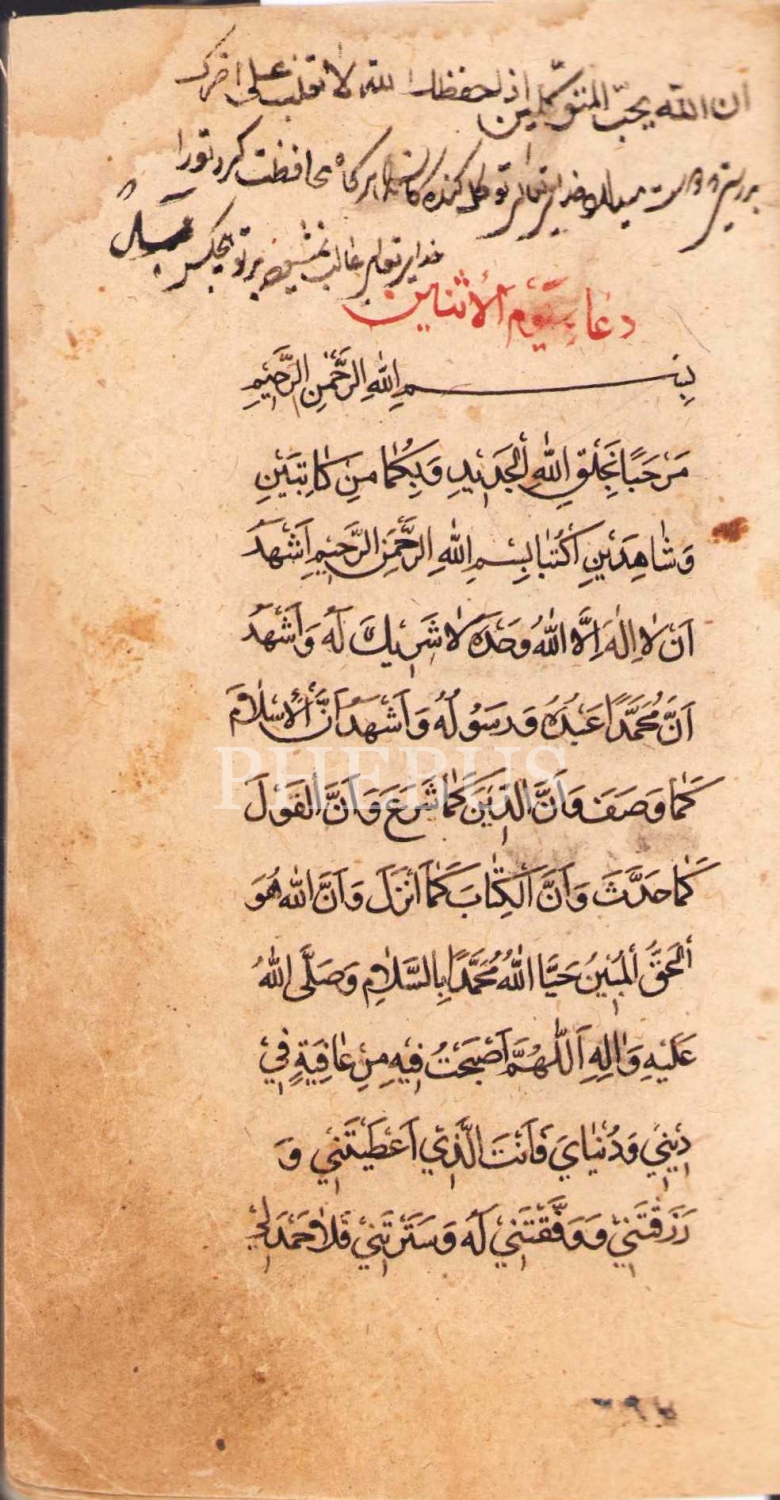 ان الله یحبّ المتوکّلین اذا حفظك الله لا تغلب علی
دوست میدارد خدایتعالی توکل کننده کانرا هر کاه محافظت کرد تورا
خدایتعالی غالب نمیشود بر تو هیچکس
دعاء یَوْم الاثنین
بِسْمِ اللهِ الرَّحْمٰنِ الرَّحیْمِ
مَرْحَبًا بِخَلْقِ اللهِ الْجَدیْدِ وَبِکُمٰا مِنْ کٰاتِبَیْنِ
وَشٰاهِدَیْنِ اُکْتُبٰا بِسْمِ اللهِ الرَّحْمٰنِ الرَّحیْمِ اَشْهَدُ
اَنْ لاٰ اِلٰهَ اِلَّا اللهُ وَحْدَهُ لاٰ شَریْكَ لَهُ وَاَشْهَدُ
اَنَّ مُحَمَّدًا عَبْدُهُ وَرَسُوْلُهُ وَاَشْهَدُ اَنَّ الْاِسْلاٰمَ
کَمٰا وَصَفَ وَاَنَّ الدّیْنَ کَمٰا شَرَعَ وَاَنَّ الْقَوْلَ
کَمٰا حَدَّثَ وَاَنَّ الْکِتٰابَ کَمٰا اَنْزَلَ وَاَنَّ اللهَ هُوَ
الْحَقُّ الْمُبیْنُ حَیَّا اللهُ مُحَمَّدًا بِالسَّلاٰمِ وَصَلَّی اللهُ
عَلَیْهِ وَاٰلِهِ اَللّٰهُمَّ اَصْبَحْتُ فیْهِ مِنْ عٰافِیَةٍ فیْ
دیْنیْ وَدُنْیٰایَ فَاَنْتَ الَّذیْ اَعْطَیْتَنیْ وَ
رَزَقْتَنیْ وَوَفَّقْتَنیْ لَهُ وَسَتَرْتَنیْ فَلاٰ حَمْدَ لیْ
PHEBUS